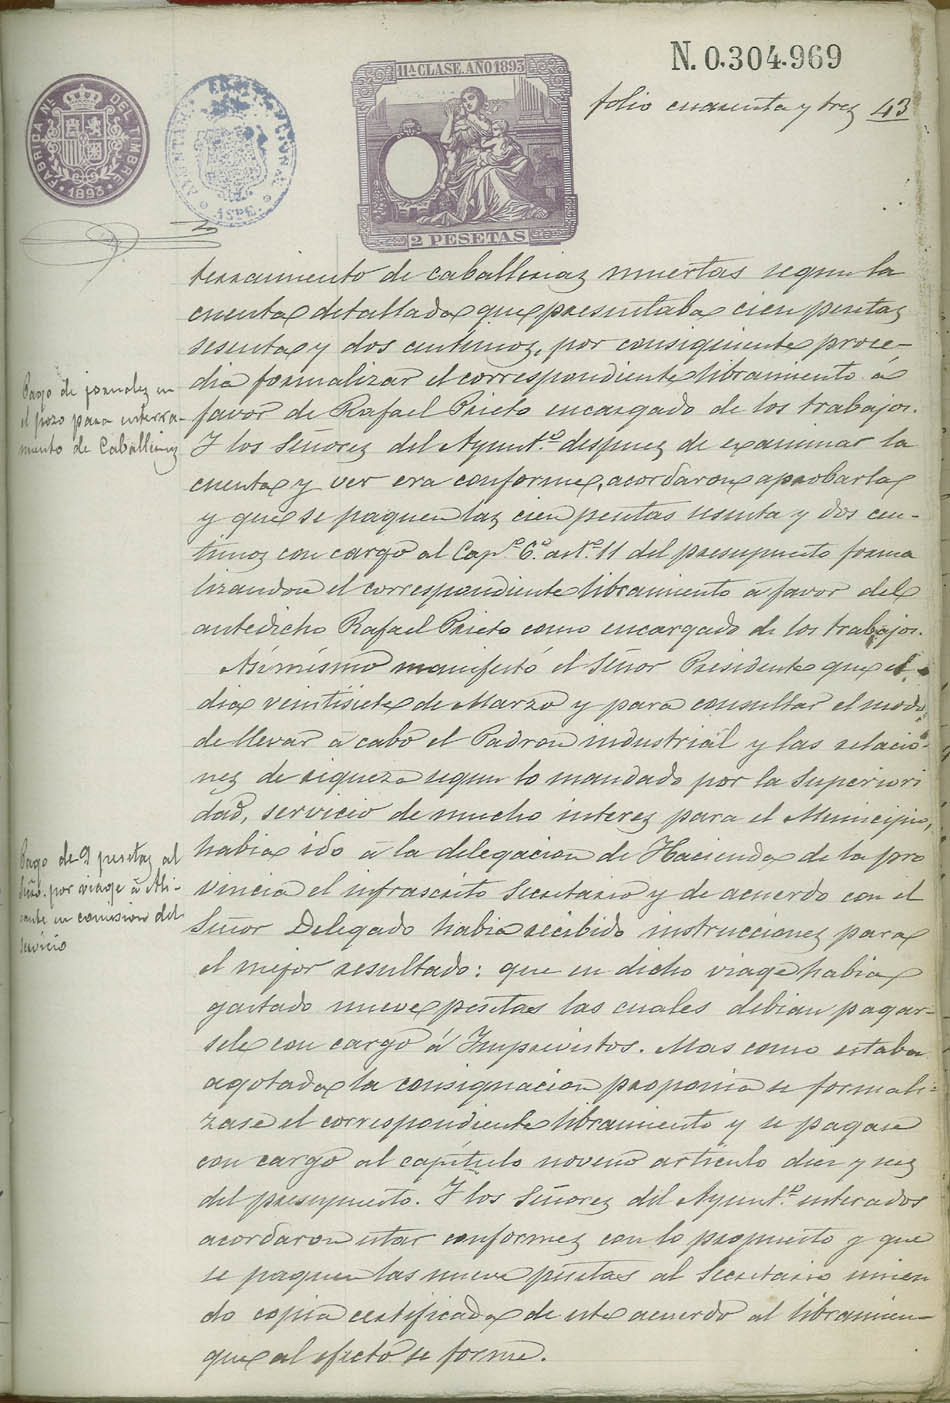 N. 0.304.969
folio cuarenta y tres 43
FABRICA NAL. DEL TIMBRE
1893
ASPE
11ª CLASE. AÑO 1893
2 PESETAS
terramiento de caballerias muertas segun la
cuenta detallada que presentaba cien pesetas
sesenta y dos centimos, por consiguiente proce-
dia formalizar el correspondiente libramiento á
favor de Rafael Prieto encargado de los trabajos.
Y los Señores del Ayuntº. despues de examinar la
cuenta y ver era conforme, acordaron aprobarla
y que se paguen las cien pesetas sesenta y dos cen-
timos con cargo al Capº. 6º. artº. 11 del presupuesto forma
lizandose el correspondiente libramiento á favor del
antedicho Rafael Prieto como encargado de los trabajos.
Asimismo manifestó el Señor Presidente que el
dia veintisiete de Marzo y para consultar el modo
de llevar á cabo el Padron industrial y las relacio-
nes de riqueza segun lo mandado por la Superiori
dad, servicio de mucho interes para el Municipio,
habia ido á la delegacion de Hacienda de la pro
vincia el infrascrito Secretario y de acuerdo con el
Señor Delegado habia recibido instrucciones para
el mejor resultado: que en dicho viage habia
gastado nueve pesetas las cuales debian pagar-
sele con cargo á Imprevistos. Mas como estaba
agotada la consignacion proponia se formali-
zase el correspondiente libramiento y se pagase
con cargo al capítulo noveno artículo diez y seis
del presupuesto. Y los Señores del Ayuntº. enterados
acordaron estar conformes con lo propuesto y que
se paguen las nueve pesetas al Secretario unien
do copia certificada de este acuerdo al libramien-
que al efecto se forme.
Pago de jornales en
el pozo para enterra-
miento de Caballerias
Pago de 9 pesetas al
Srio. por viage á Ali-
cante en comision del
servicio